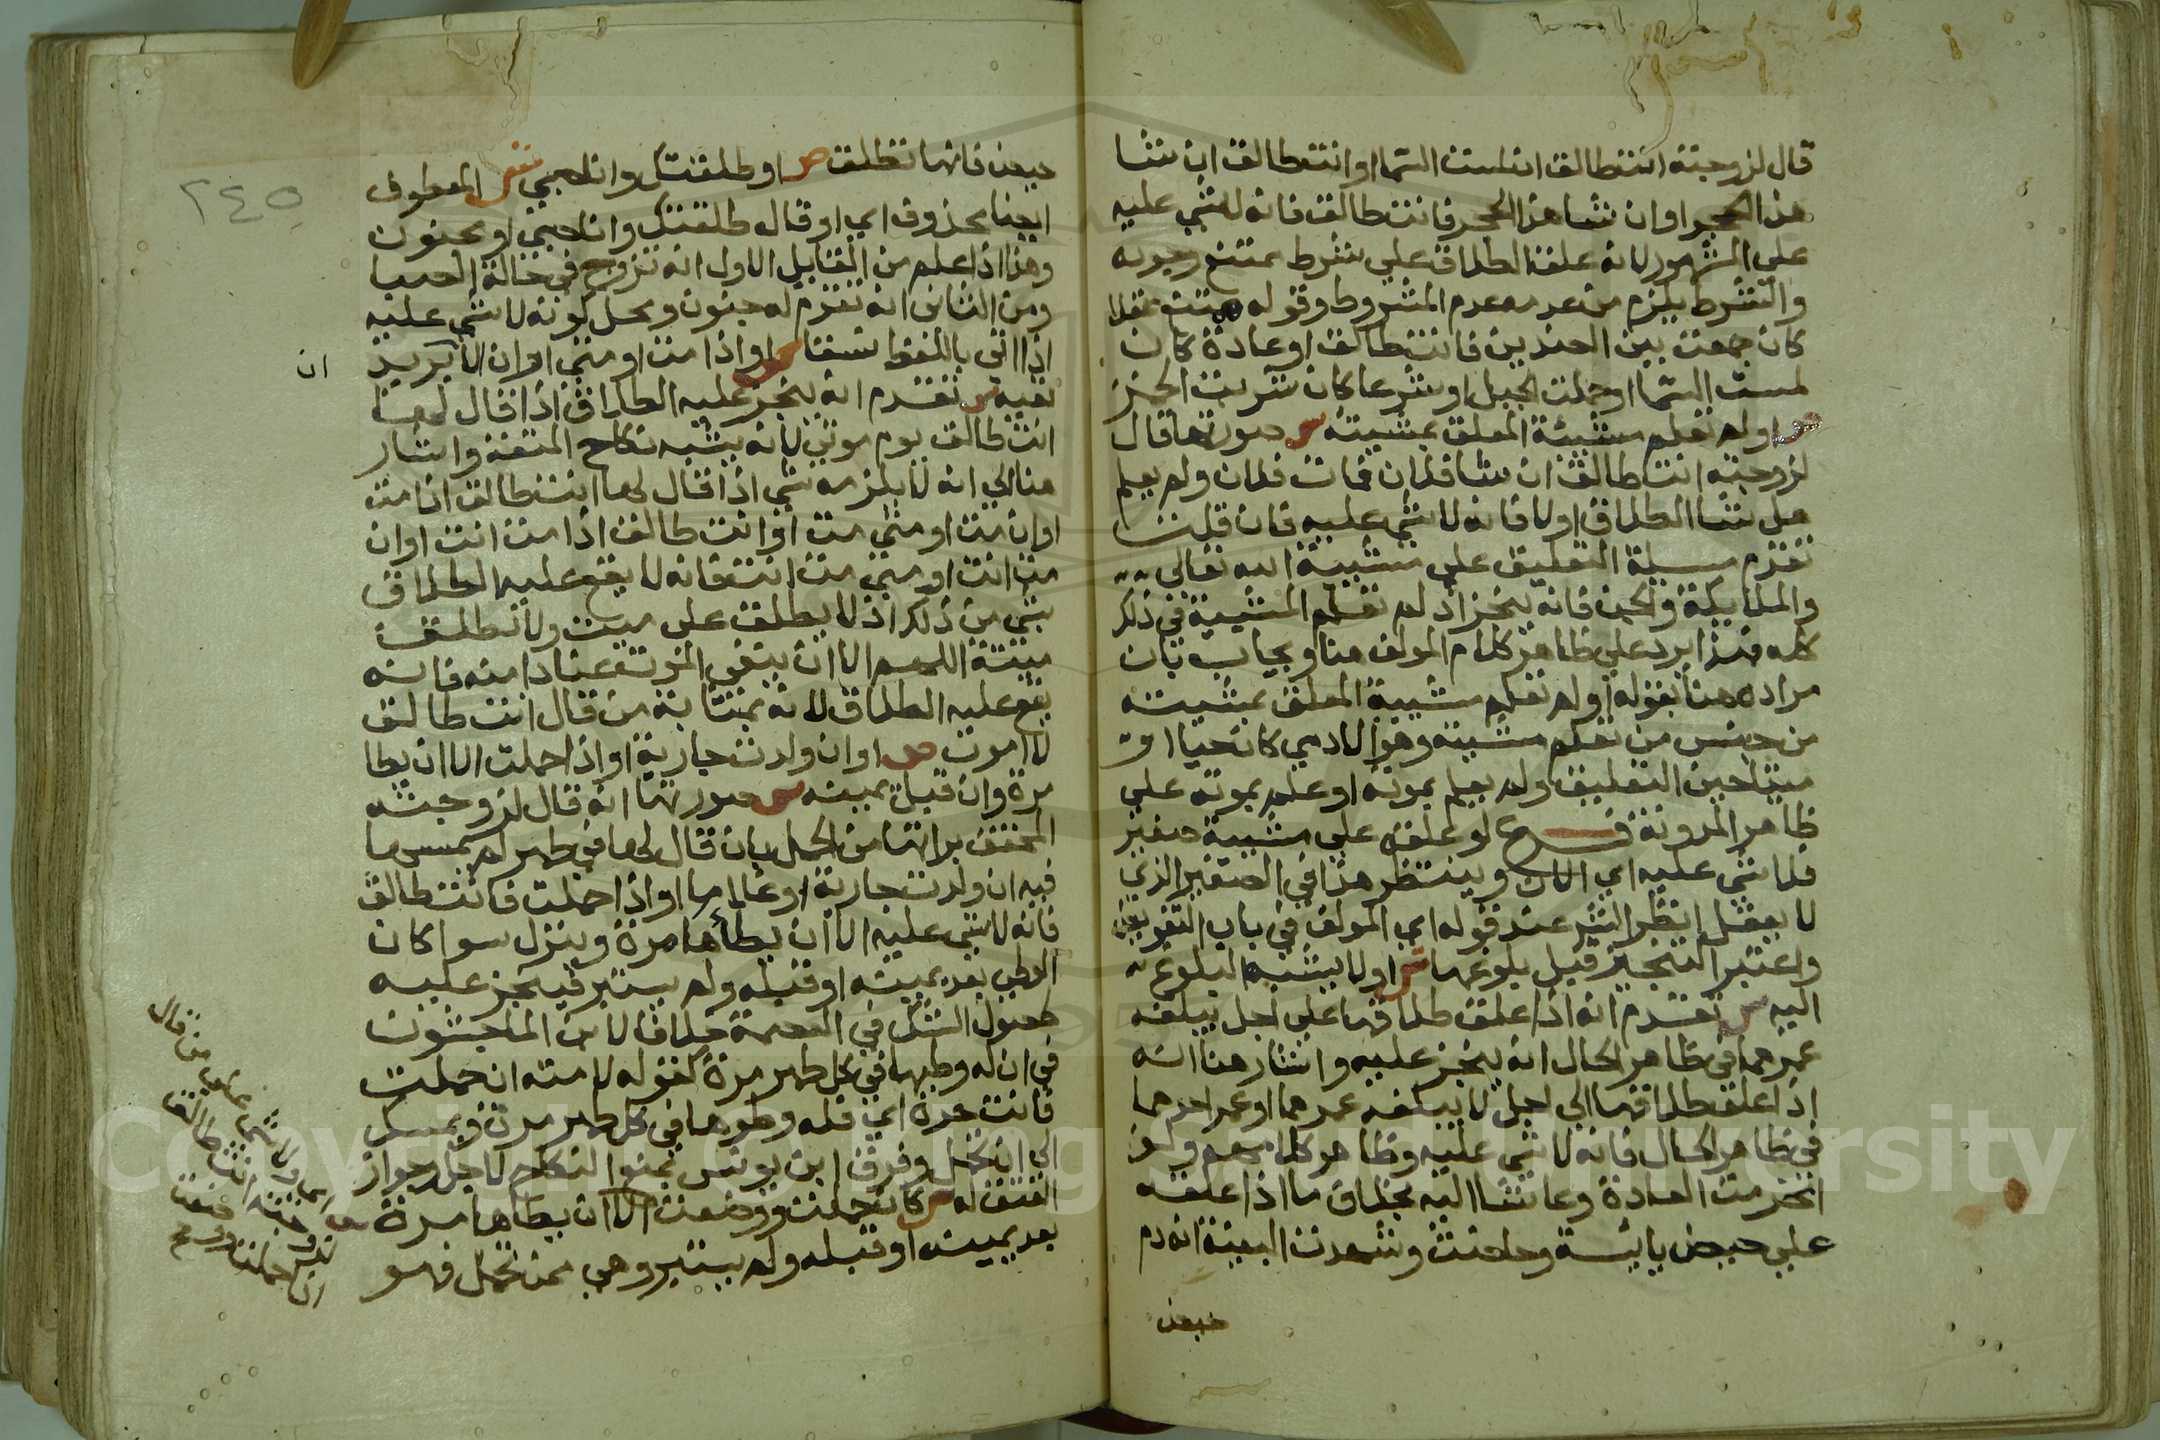 قال لزوجته انت طالق ان لمست السما او انت طالق ان شا
هذا الحجر او ان شا هذا الحجر فانت طالق فانه لا شي عليه
على المشهور لانه علق الطلاق علي شرط ممتنع وجوده
والشرط يلزم من عدمه عدم المشروط وقوله ممتنع عقلا
كان جمعت بين الضدين فانت طالق او عادة كان
لمست السما او حملت الجبل او شرعا كان شربت الخمر
ص او لم تعلم مشيئة المعلق بمشيته ش صورتها قال
لزوجته انت طالق ان شا فلان فمات فلان ولم يعلم
هل شا الطلاق او لا فانه لا شي عليه فان قلت
تقدم مسيلة التعليق علي مشيية الله تعالي
والملايكة والجن فانه ينجز اذ لم تعلم المشيية في ذلك
كله فهذا يرد علي ظاهر كلام المولف هنا ويجاب بان
مراده هنا بقوله او لم تعلم مشيية المعلق بمشيته
من جنس من تعلم مشيته وهو الادمي كان حيا او
ميتا حين التعليق ولم يعلم بموته او علم بموته علي
ظاهر المدونة فرع لو علقه علي مشيية صغير
فلا شي عليه اي الان وينتظر هذا في الصغير الذي
لا يعقل انظر الشر عند قوله اي المولف في باب التفويض
واعتبر التنجيز قبل بلوغها ص او لا يشبه البلوغ
اليه ش تقدم انه اذا علق طلاقها على اجل يبلغه
عمرهما في ظاهر الحال انه ينجز عليه واشار هنا انه
اذا علق طلاقها الي اجل لا يبلغه عمرهما او عمر احدهما
في ظاهر الحال فانه لا شي عليه وظاهر كلامهم ولو
انخرمت العادة وعاشا اليه بخلاف ما اذا علقه
علي حيض يايسة وحاضت وشهدت البينة انه دم
حيض
٢٤٥
حيض فانها تطلق ص او طلقتك وانا صبي ش المعطوف
ايضا محذوف اي او قال طلقتك وانا صبي او مجنون
وهذا اذا علم من القايل الاول انه تزوج في حالة الصبا
ومن الثاني انه تقدم له جنون ومحل كونه لا شي عليه
اذا اتي باللفظ نسقا ص او اذا مت او متي او ان الا يريد
نفيه ش تقدم انه ينجز عليه الطلاق اذا قال لها
انت طالق يوم موتي لانه يشبه نكاح المتعة واشار
هنا الي انه لا يلزمه شي اذا قال لها انت طالق اذا مت
او ان مت او متي مت او انت طالق اذا مت انت او ان
مت انت او متي مت انت فانه لا يقع عليه الطلاق
بشي من ذلك اذ لا يطلق على ميت ولا تطلق
ميتة اللهم الا ان ينفي الموت عنادا منه فانه
يقع عليه الطلاق لانه بمثابة من قال انت طالق
لا اموت ص او ان ولدت جارية او اذا حملت الا ان يطا
مرة وان قبل يمينه ش صورتها انه قال لزوجته
المحقق براتها من الحمل بان قال لها في طهر لم يمسها
فيه ان ولدت جارية او غلاما او اذا حملت فانت طالق
فانه لا شي عليه الا ان يطأها مرة وينزل سوا كان
الوطي بعد يمينه او قبله ولم يستبر فينجز عليه
لحصول الشك في العصمة خلافا لابن الماجشون
في ان له وطيها في كل طهر مرة كقوله لامته ان حملت
فانت حرة اي فله وطوها في كل طهر مرة ويمسك
الي ان تحمل وفرق ابن يونس بمنع النكاح لاجل وجواز
العتق له ص كان حملت ووضعت الا ان يطاها مرة
بعد يمينه او قبله ولم يستبر وهي ممن تحمل فهو
ان
اي ولا شي علي من قال
لزوجته انت طالق
ان حملت ووضعت